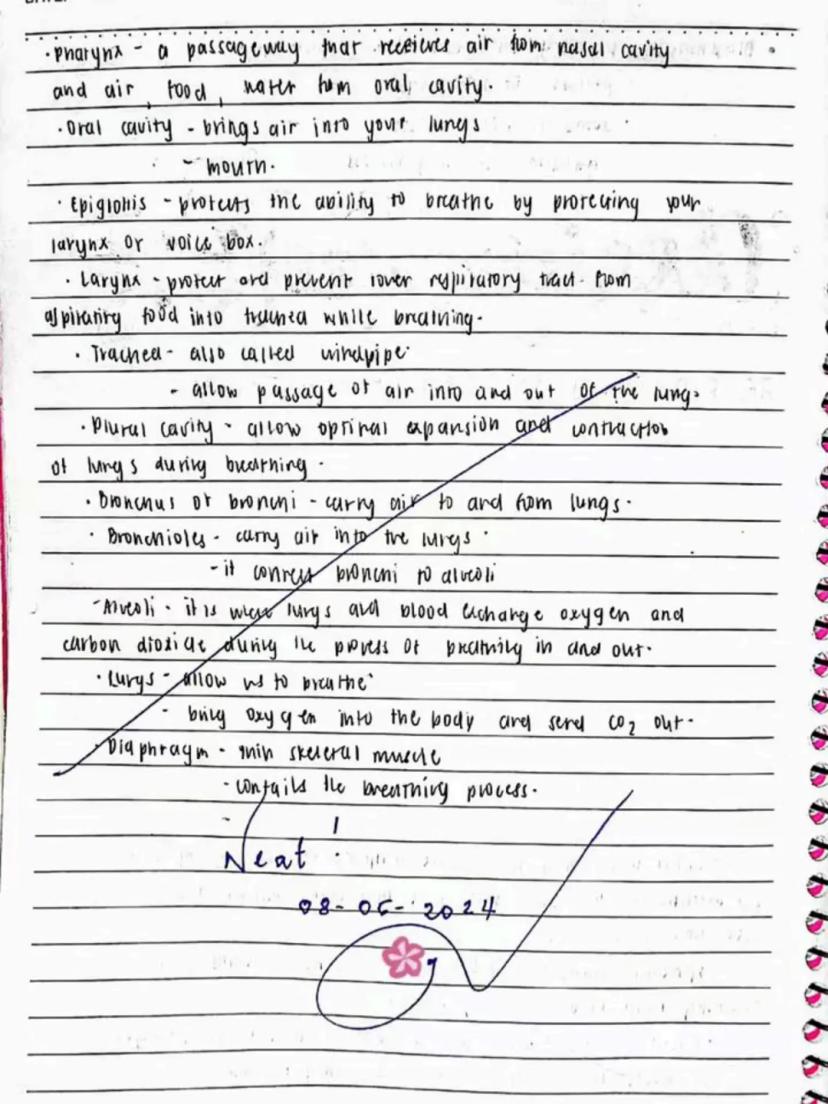 • Pharynx - a passageway that receives air from nasal cavity
and air, food, water from oral cavity.
• Oral cavity - brings air into your lungs
- mouth.
• Epiglottis - protects the ability to breathe by protecting your
larynx or voice box.
• Larynx - protect and prevent lower respiratory tract from
aspirating food into trachea while breathing.
• Trachea - also called windpipe
- allow passage of air into and out of the lung.
• Plural cavity - allow optimal expansion and contraction
of lungs during breathing.
• Bronchus or bronchi - carry air to and from lungs.
• Bronchioles - carry air into the lungs
- it connects bronchi to alveoli
- Alveoli - it is where lungs and blood exchange oxygen and
carbon dioxide during the process of breathing in and out.
• Lungs - allow us to breathe
- bring oxygen into the body and send CO2 out.
• Diaphragm - thin skeletal muscle
- the breathing process.
-
Neat!
08-06-2024